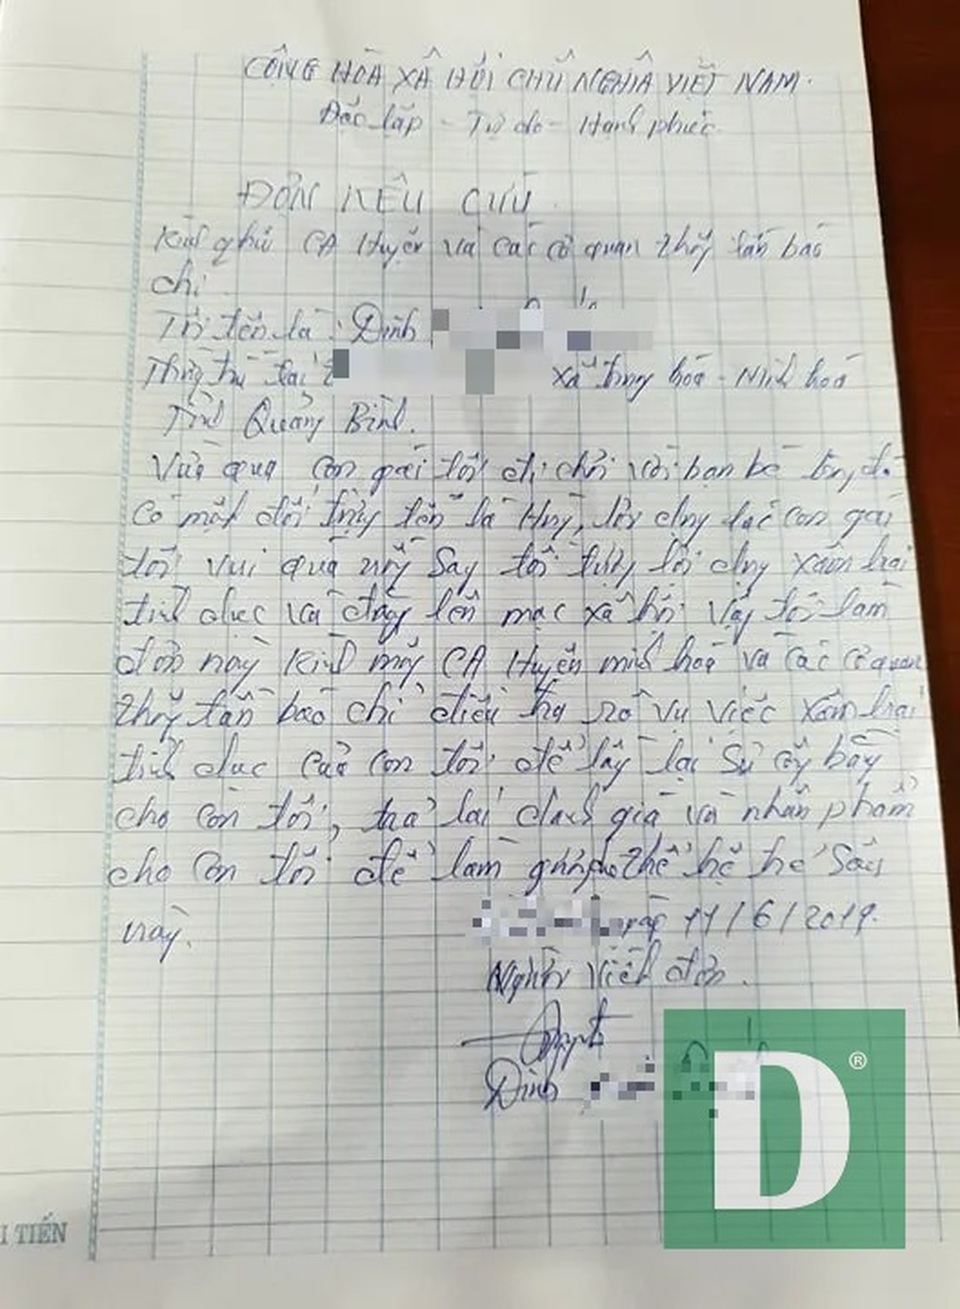 CỘNG HÒA XÃ HỘI CHỦ NGHĨA VIỆT NAM.
Độc lập - Tự do - Hạnh phúc
ĐƠN KÊU CỨU
Kính gửi CA Huyện và các cơ quan thông tấn báo
chí
Tôi tên là: Đinh
Thường trú tại xã trung hoá - Minh hoá
Tỉnh Quảng Bình.
Vừa qua con gái tôi đi chơi với bạn bè
có mặt đối tên là lợi dụng lúc con gái
tôi vui quá say lợi dụng xâm hại
tình dục và đăng lên mạc xã hội vậy tôi làm
đơn này kính CA Huyện minh hoá và các cơ quan
thông tấn báo chí điều tra rõ vụ việc xâm hại
tình dục của con tôi để lấy lại sự công bằng
cho con tôi, trả lại danh giá và nhân phẩm
cho con tôi để làm gương cho thế hệ trẻ sau
này.
ngày 11/6/2019.
Người viết đơn.
Đinh
D®
TIẾN